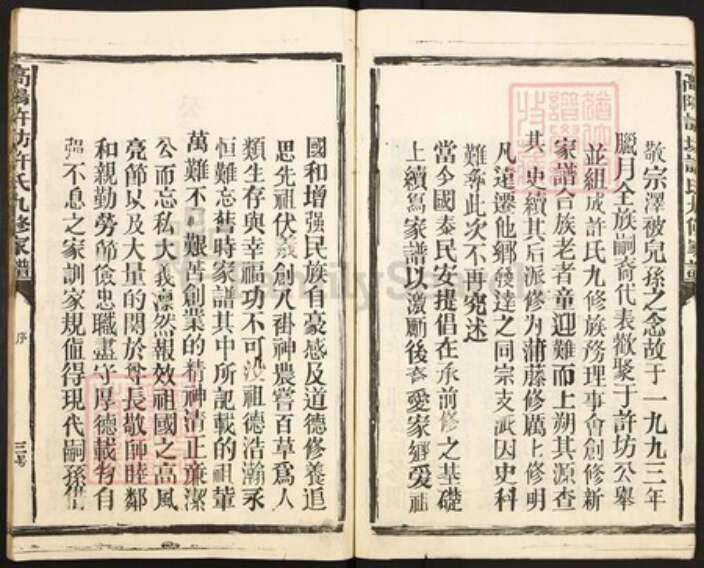 敬宗澤被兒孫之念故于一九九三年
臘月全族嗣裔代表歡聚于許坊公舉
並組成許氏九修族務理事會創修新
家譜合族老者童迎難而上朔其源查
其史續其后派修为蒲藤修厲上修明
凡遠遷他鄉發達之同宗支派因史料
難尋此次不再究述
當今國泰民安提倡在承前修之基礎
上續寫家譜以激勵後喬愛家鄉爱祖
國和增强民族自豪感及道德修養追
思先祖伏羲創八褂神農嘗百草爲人
類生存與幸福功不可没祖德浩瀚永
恒難忘舊時家譜其中所記載的祖輩
萬難不艱苦創業的精神清正廉潔
公而忘私大義凛然報效祖國之高風
亮節以及大量的関於尊長敬師睦鄰
和親勤勞節儉忠職盡守厚德載物自
强不息之家訓家規值得現代嗣孫
高陽許坊許氏九修家譜
序